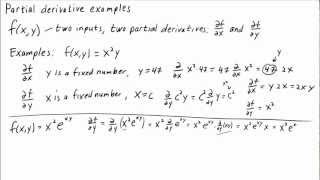 Partial derivative examples
f(x,y) – two inputs, two partial derivatives: ∂f/∂x and ∂f/∂y
Examples: f(x,y) = x²y
y
∂f/∂x y is a fixed number, y=47 ∂/∂x x²·47 = 47 ∂/∂x x² = 47 · 2x
∂f/∂x = y 2x = 2xy
∂f/∂y x is a fixed number, x=c ∂/∂y c²y = c² ∂/∂y y = c²
∂f/∂y = x²
f(x,y) = x²e^{xy} ∂f/∂y = ∂/∂y (x²e^{xy}) = x² ∂/∂y e^{xy} = x² e^{xy} · ∂/∂y (xy) = x² e^{xy} x = x³e